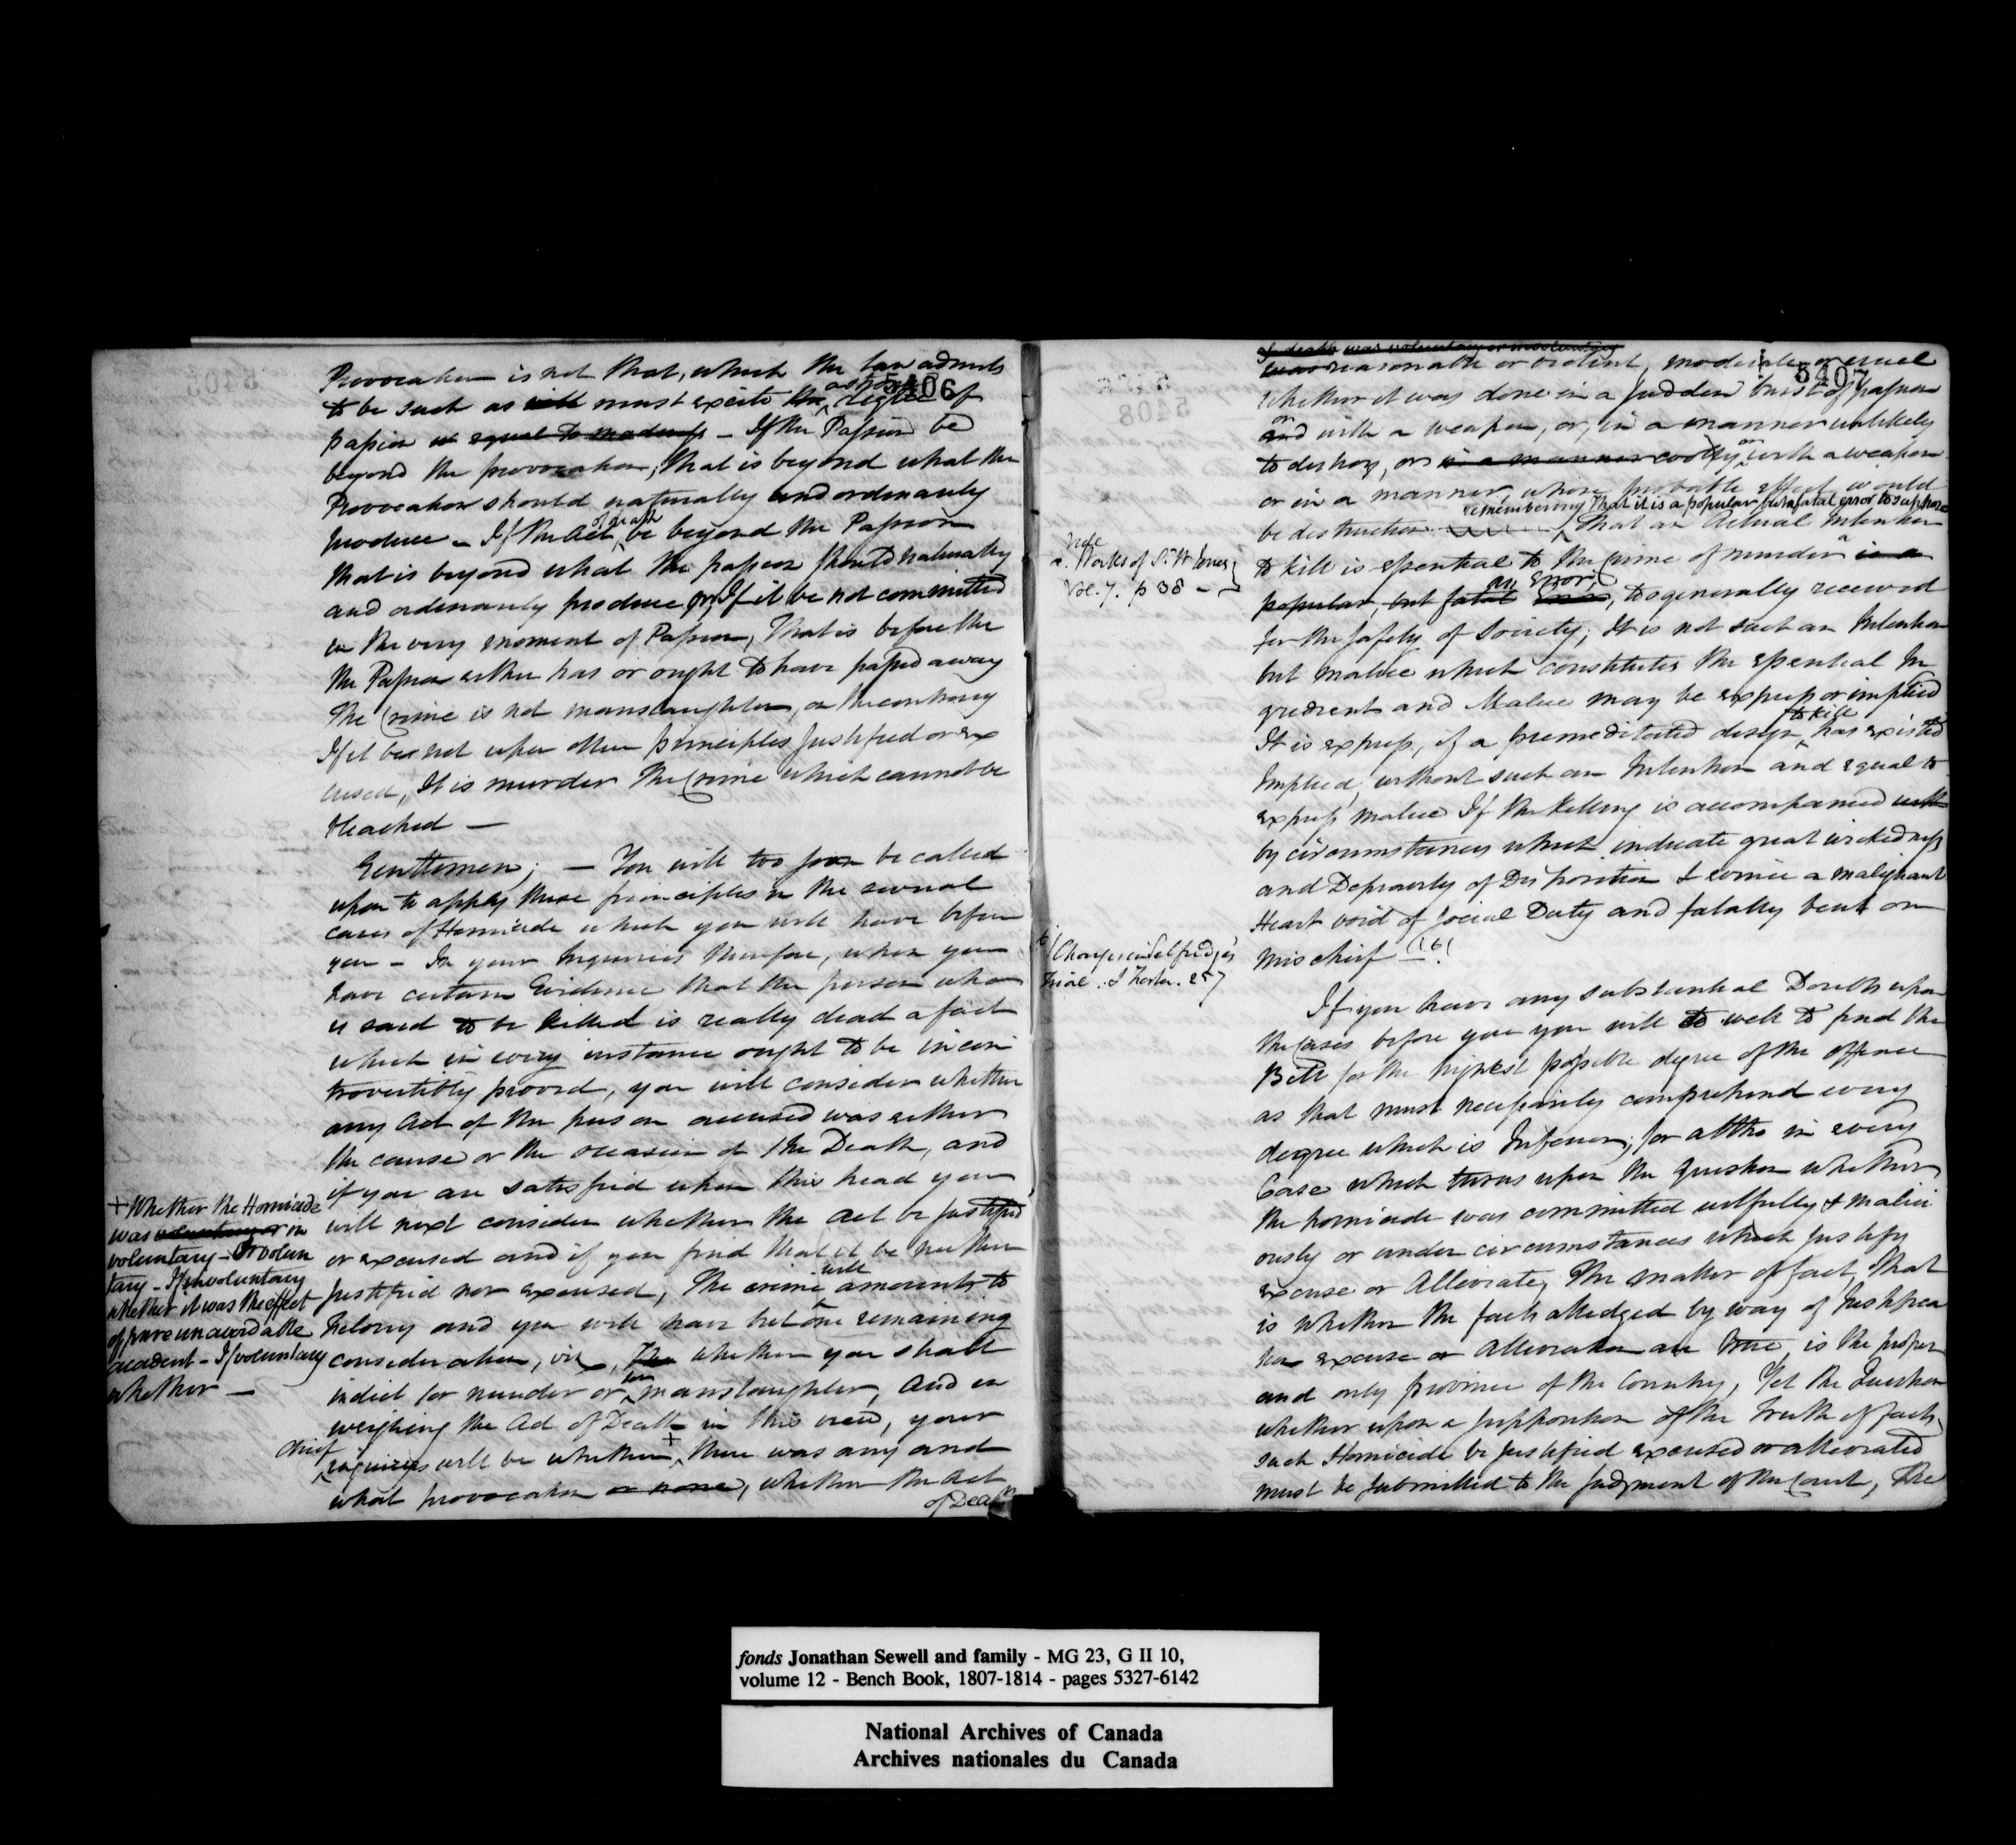 5406
Provocation is not that, which the law admits
to be such as will must excite the a strong degree of
passion as equal to madness - If the Passion be
beyond the provocation, that is beyond what the
Provocation should naturally and ordinarily
produce - If the Act of death be beyond the Passion
that is beyond what the passion should naturally
and ordinarily produce or If it be not committed
in the very moment of Passion, That is before the
the Passion either has or ought to have passed away
The Crime is not manslaughter, on the contrary
If it be not upon other principles justified or ex
cused, It is murder the Crime which cannot be
bleached -
Gentlemen; - You will too soon be called
upon to apply these principles in the several
cases of Homicide which you will have before
you - In your Inquiries therefore, when you
have certain Evidence that the person who
is said to be killed is really dead a fact
which in every instance ought to be incon
trovertibly proved, you will consider whether
any act of the person accused was either
the cause or the occasion of the Death, and
if you are satisfied upon this head you
will next consider whether the act be justified
or excused and if you find that it be neither
justified nor excused, the crime will amount to
Felony and you will have but one remaining
consideration, viz, The whether you shall
indict for murder or for manslaughter, and in
weighing the Act of Death in this view, your
chief inquiries will be whether + there was any and
what provocation or none, whether the act
of Death
+ Whether the Homicide
was voluntary or in
voluntary - Or volun
tary - If involuntary
whether it was the effect
of pure unavoidable
accident - If voluntary
whether -
5407
of death was voluntary or involuntary
was reasonable or violent, moderate or cruel
whether it was done in a sudden burst of passion
and or with a weapon, or, in a manner unlikely
to destroy, or in a manner coolly or with a weapon
or in a manner, whose probable effect would
be destruction remembering that it is a popular but fatal error to suppose
that an Actual Intention
to kill is essential to the Crime of murder a is a
popular, but fatal Error, an Error, too generally received
for the safety of Society; It is not such an Intention
but malice which constitutes the essential In
gredient and Malice may be express or implied
It is express, if a premeditated design to kill has existed
Implied, without such an Intention and equal to
express malice If the Killing is accompanied with
by circumstances which indicate great wickedness
and Depravity of Disposition & evince a malignant
Heart void of social Duty and fatally bent on
mischief (b)
If you have any substantial Doubts upon
the Cases before you you will do well to find the
Bill for the highest possible degree of the offence
as that must necessarily comprehend every
degree which is Inferior; for altho in every
Case which turns upon the question whether
the homicide was committed wilfully & malici
ously or under circumstances which justify
excuse or Alleviate, the matter of fact, that
is whether the facts alledged by way of justifica
tion excuse or Alleviation are true, is the proper
and only province of the Country, Yet the Question
whether upon a supposition of the truth of facts
such Homicide be justified excused or alleviated
must be submitted to the judgment of the Court, the
Note
a. Works of Sr. Wm Jones
Vol. 7. p 38 -
b/ Charge in Selfridge's
Trial. & Foster. 257
fonds Jonathan Sewell and family - MG 23, G II 10,
volume 12 - Bench Book, 1807-1814 - pages 5327-6142
National Archives of Canada
Archives nationales du Canada